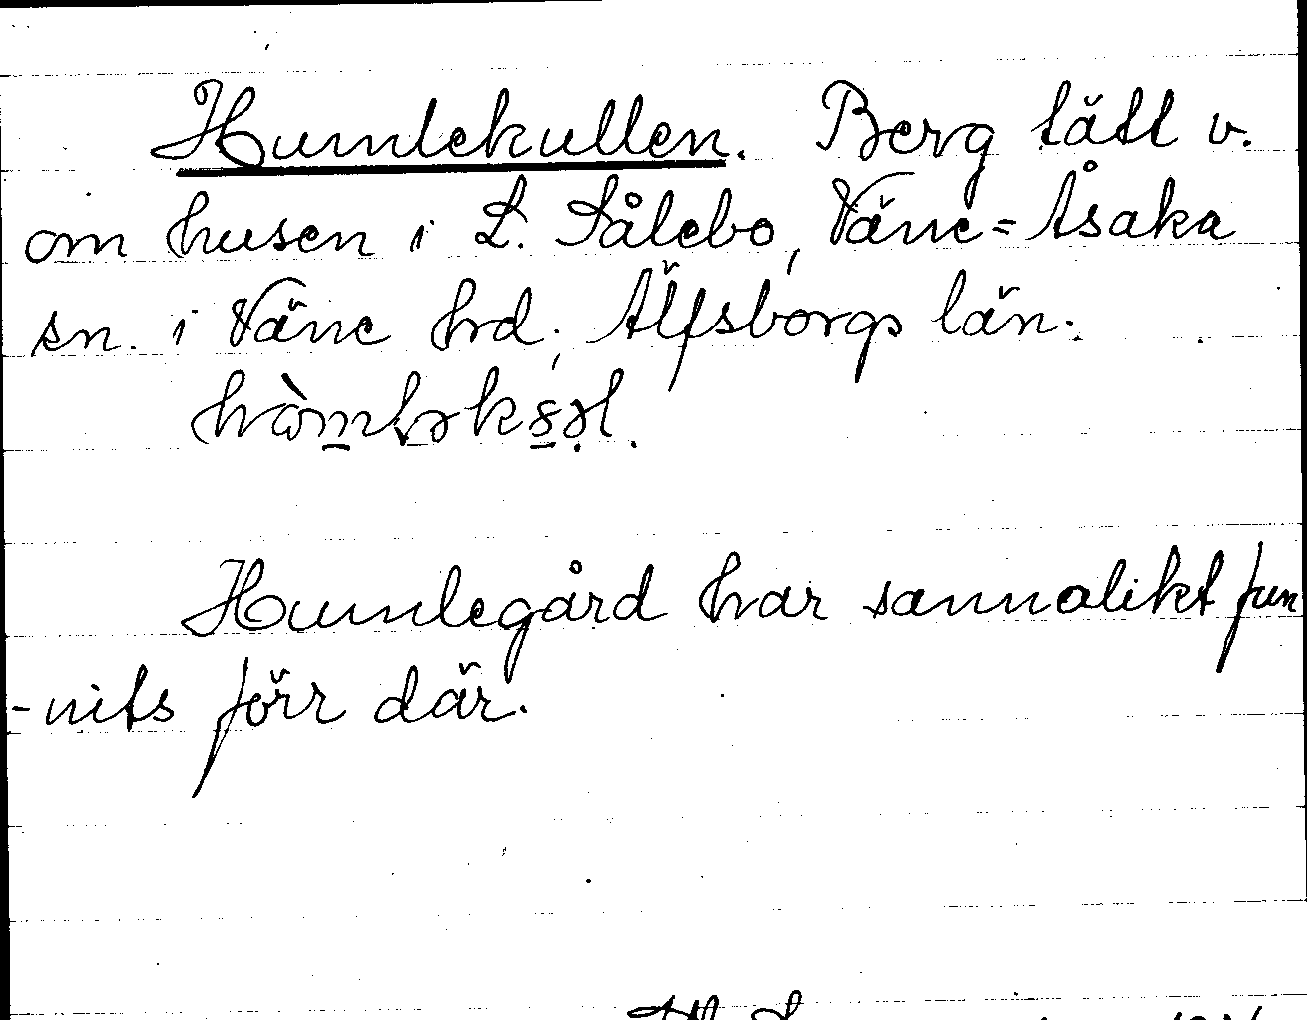 Humlekullen. Berg tätt v.
om husen i L. Sålebo, Väne=Åsaka
sn. i Väne hrd; Älfsborgs län.
Humlegård har sannolikt fun
-nits förr där.